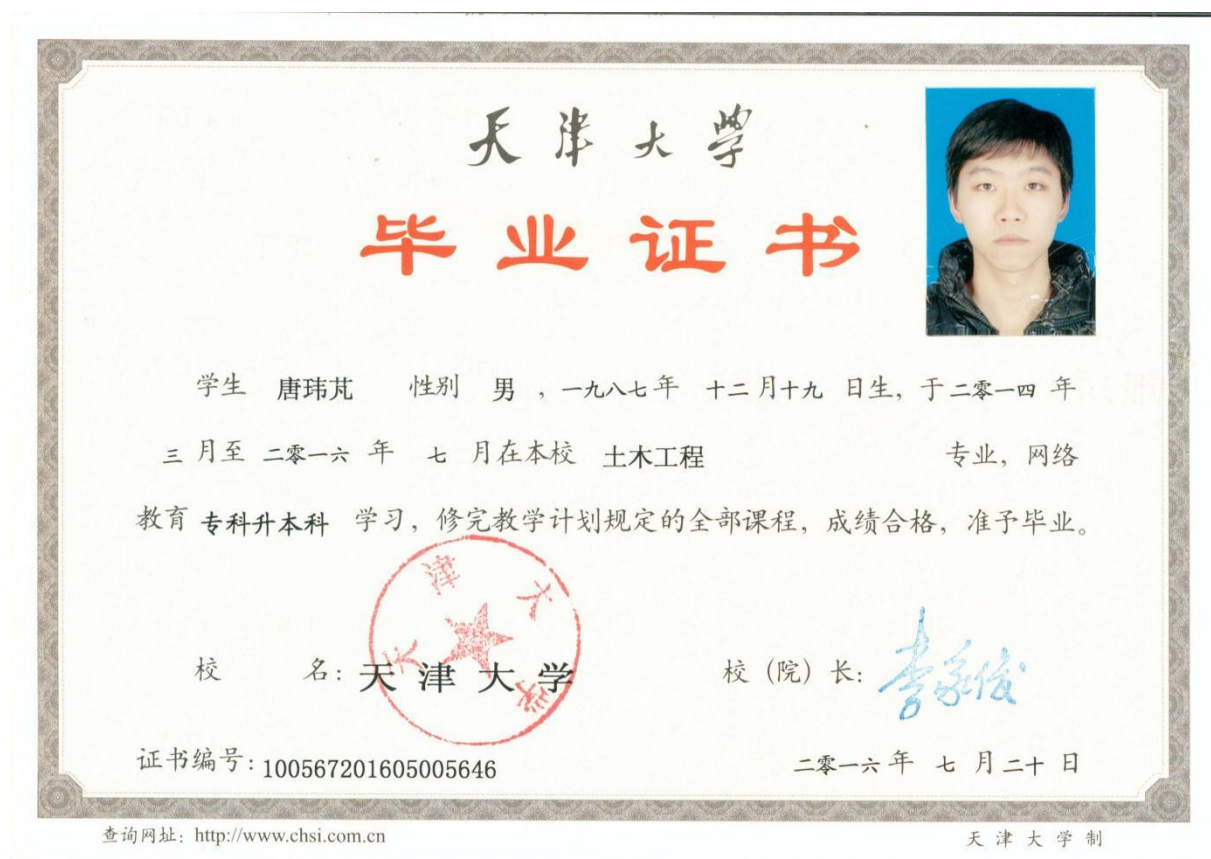 天津大学
毕业证书
学生 唐玮芃 性别 男 ，一九八七年 十二月十九 日生，于二零一四 年
三 月至 二零一六 年 七 月在本校 土木工程 专业，网络
教育 专科升本科 学习，修完教学计划规定的全部课程，成绩合格，准予毕业。
天津大学
校 名：天津大学 校（院）长：李家俊
证书编号：100567201605005646 二零一六年 七 月二十 日
查询网址：http://www.chsi.com.cn 天津大学制